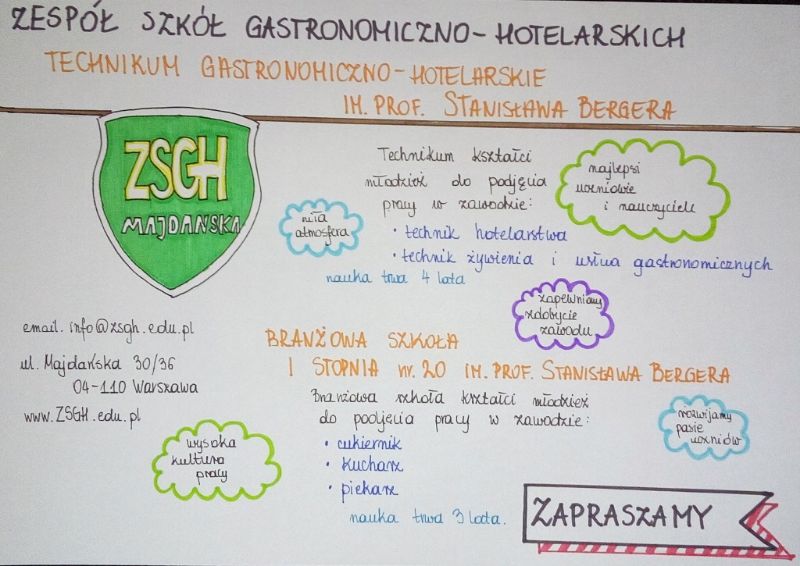 ZESPÓŁ SZKÓŁ GASTRONOMICZNO-HOTELARSKICH
TECHNIKUM GASTRONOMICZNO-HOTELARSKIE
IM. PROF. STANISŁAWA BERGERA
ZSGH
MAJDAŃSKA
Technikum kształci
młodzież do podjęcia
pracy w zawodzie:
• technik hotelarstwa
• technik żywienia i usług gastronomicznych
nauka trwa 4 lata
najlepsi
uczniowie
i nauczyciele
miła
atmosfera
zapewniamy
zdobycie
zawodu
email. info@zsgh.edu.pl
ul. Majdańska 30/36
04-110 Warszawa
www.ZSGH.edu.pl
BRANŻOWA SZKOŁA
I STOPNIA nr. 20 IM. PROF. STANISŁAWA BERGERA
Branżowa szkoła kształci młodzież
do podjęcia pracy w zawodzie:
• cukiernik
• kucharz
• piekarz
nauka trwa 3 lata.
rozwijamy
pasje
uczniów
wysoka
kultura
pracy
ZAPRASZAMY